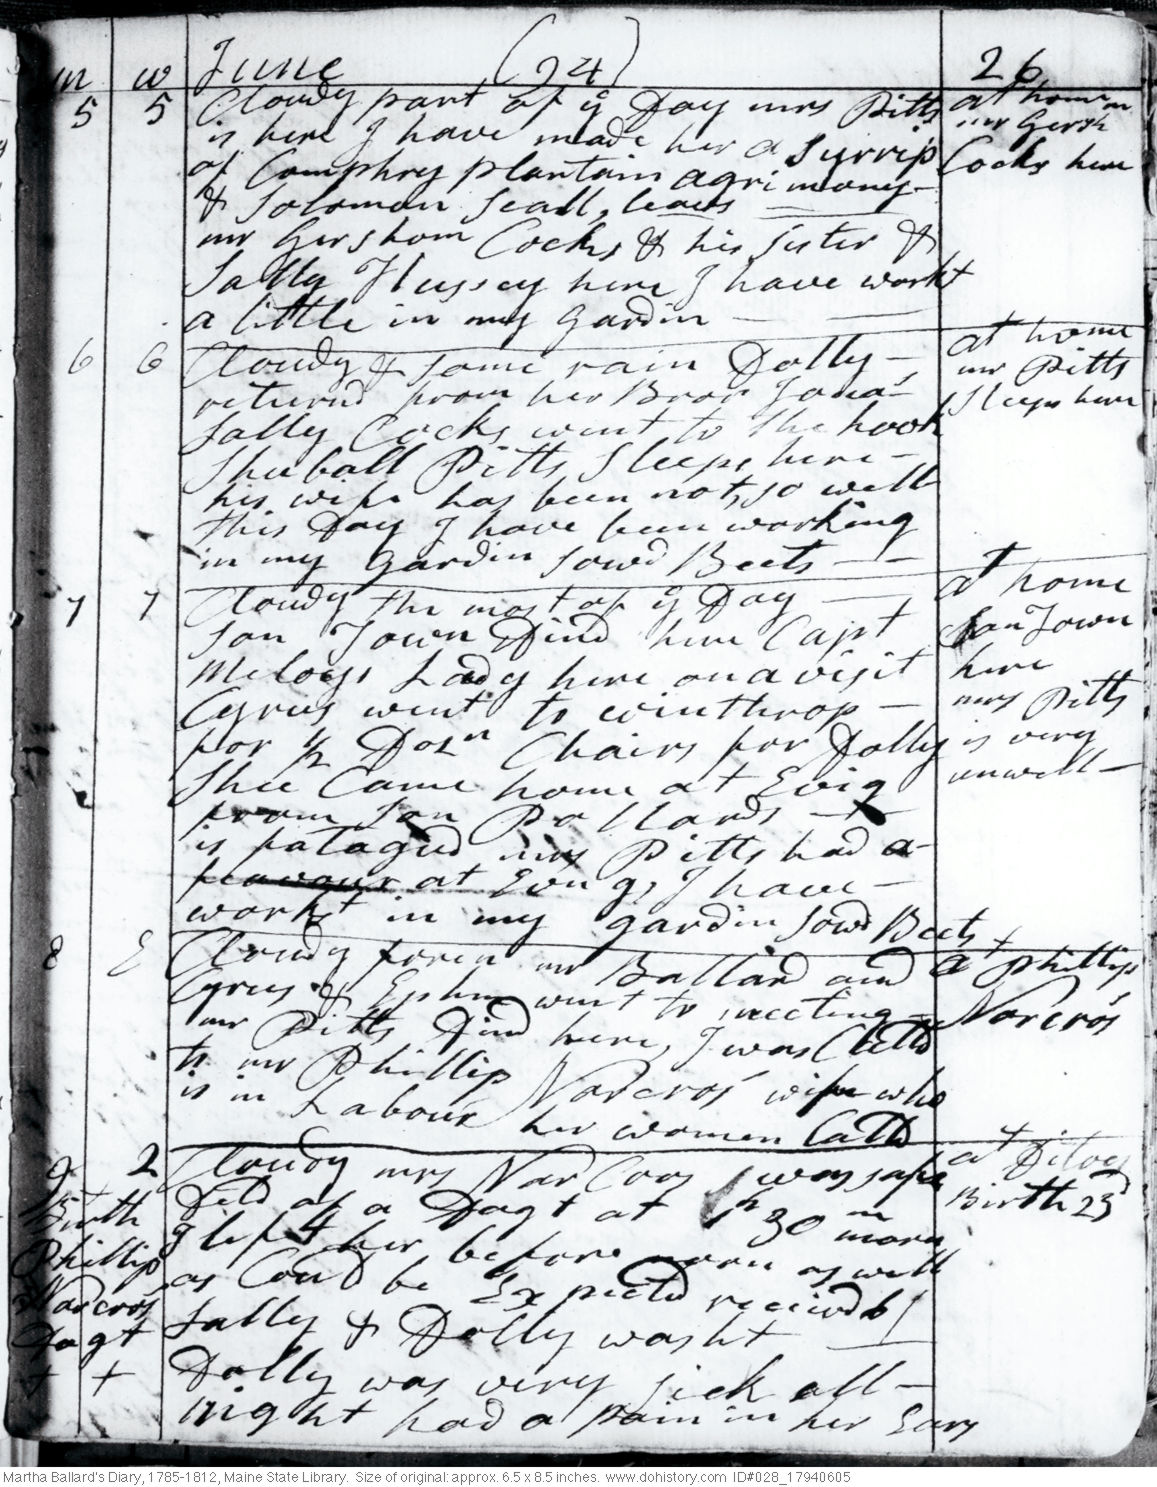 m w June (94) 26
5 5 Cloudy part of ye Day mrs Pitts
is here I have made her a Syrrip
of Comphry plantain agrimony
& Solomon Seall, leavs
mr Gershom Cocks & his sister &
Sally Hussey here I have workt
a little in my Gardin
at home
mr Gersh
Cocks here
6 6 Cloudy & some rain Dolly
returnd from her Bror Jona's
Sally Cocks went to the hook
Shuball Pitts Sleeps here
his wife has been not, so well
this Day I have been working
in my Gardin Sowd Beets
at home
mr Pitts
Sleeps here
7 7 Cloudy the most of ye Day
Son Town Dind here Capt
Meloys Lady here on a visit
Cyrus went to winthrop
for 1/2 Dozn Chairs for Dolly
Shee Came home at Evig
from Son Pollards
is fatagud mrs Pitts had a
at Evng, I have
workt in my gardin Sowd Beets
at home
Son Town
here
mrs Pitts
is very
unwell
8 E Cloudy foren mr Ballard and
Cyrus & Ephm went to meeting
mr Pitts Dind here, I was Calld
to mr Phillip Norcros' wife who
is in Labour her women Calld
at Phillip
Norcros'
9 2 Cloudy mrs NorCros was safe
Deld of a Dagt at 1h 30 m morn
I left her before noon as well
as Could be Expectd receivd 6/
Sally & Dolly washt
Dolly was very sick all
night had a pain in her Ears
at Ditoes
Birth 23d
Birth
Phillip
Norcros'
Dagt
+ +
Martha Ballard's Diary, 1785-1812, Maine State Library. Size of original: approx. 6.5 x 8.5 inches. www.dohistory.com ID#028_17940605